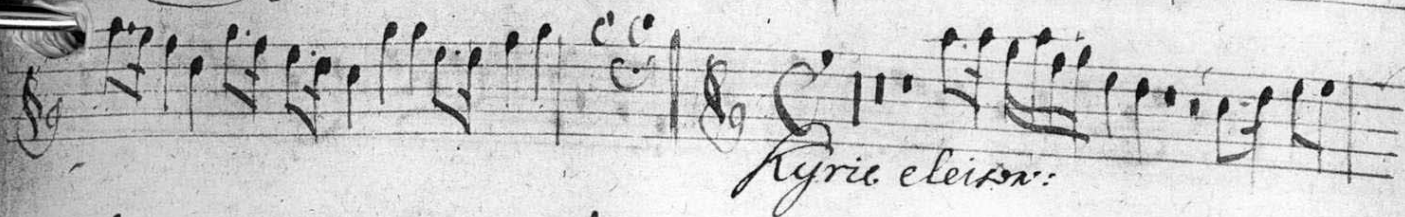 Kyrie eleison: